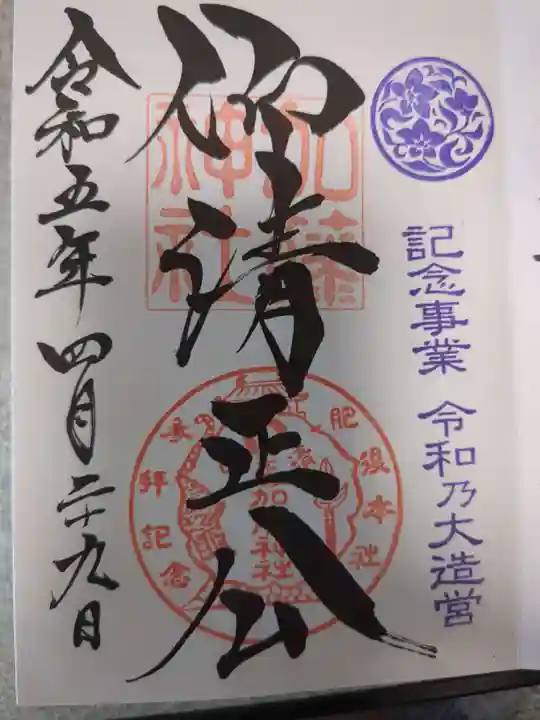 記念事業 令和乃大造営
仰清正公
加藤神社
肥後本社
加藤神社
参拝記念
令和五年四月二十九日